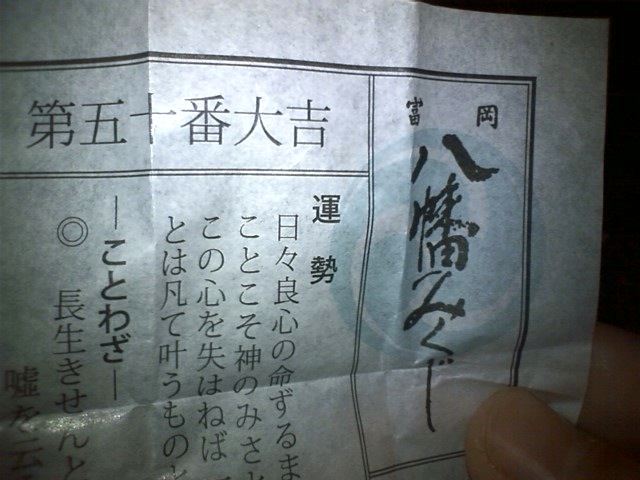 富岡
八幡みくじ
第五十番大吉
運勢
日々良心の命ずるま
ことこそ神のみさと
この心を失はねば
とは凡て叶うものと
―ことわざ―
◎ 長生きせんと
嘘を云う